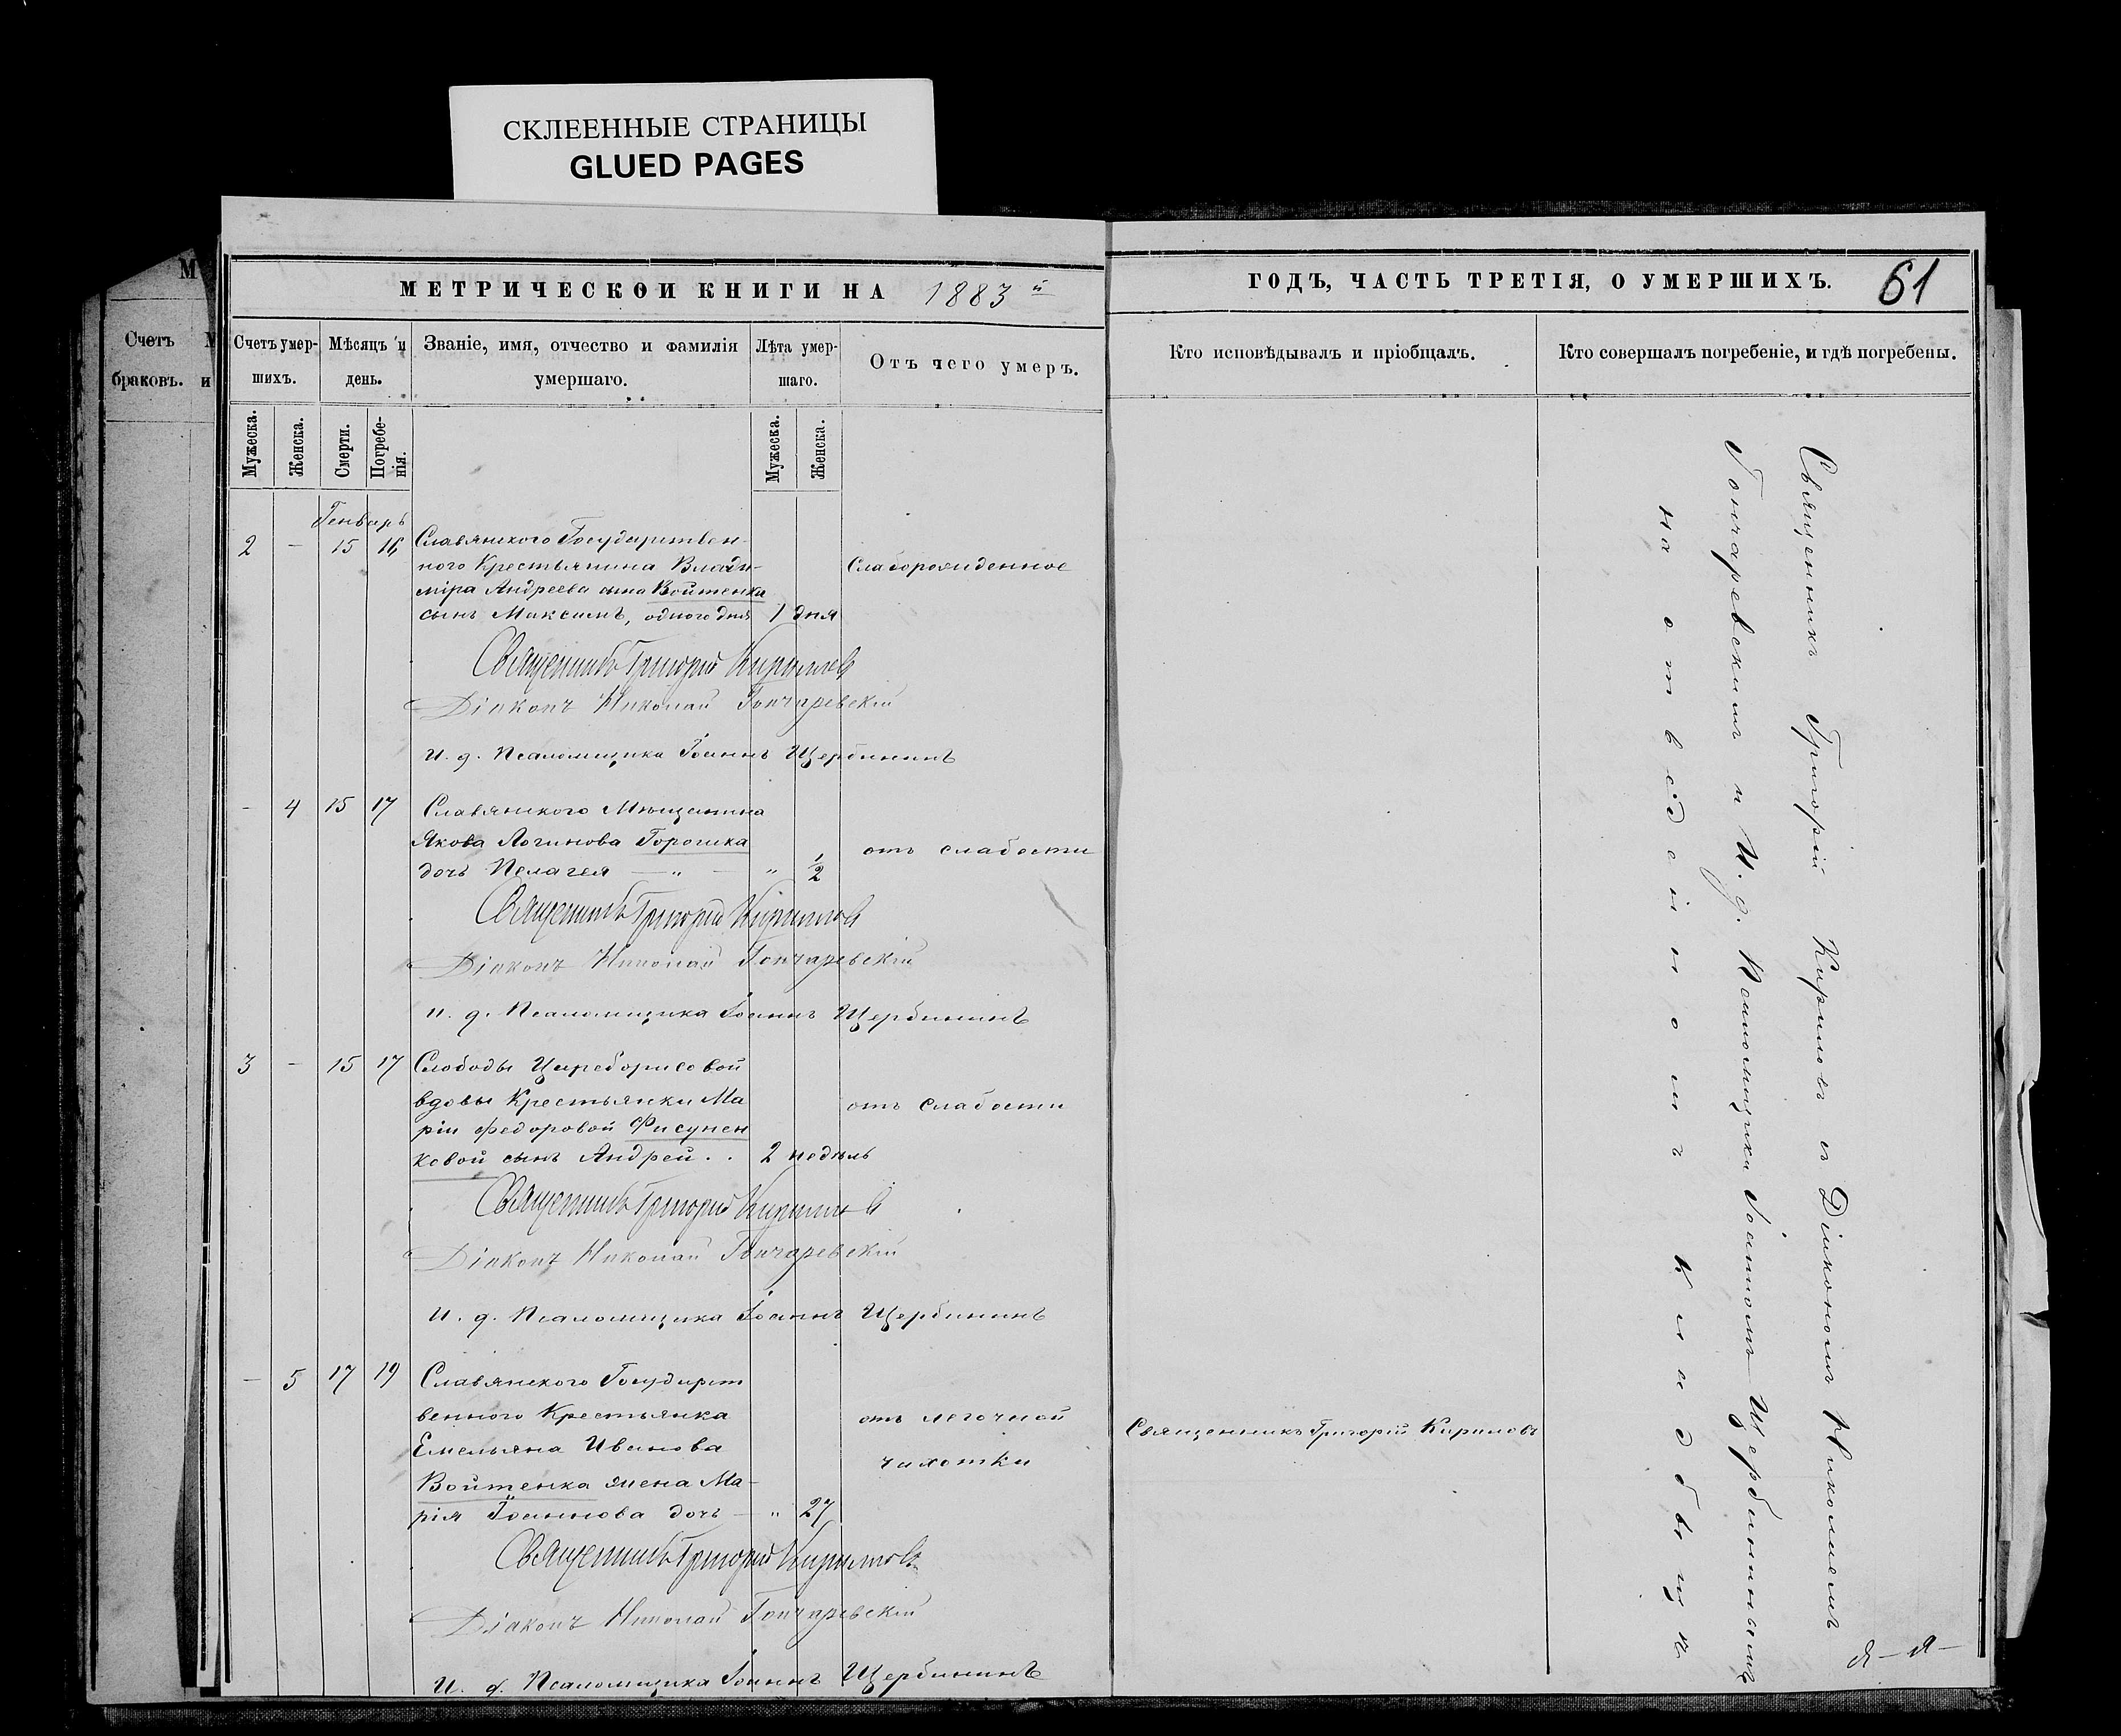 СКЛЕЕННЫЕ СТРАНИЦЫ
GLUED PAGES
М
Счетъ
браковъ. и
МЕТРИЧЕСКОЙ КНИГИ НА 1883 й
Счетъ умер-
шихъ.
Мѣсяцъ и
день.
Званіе, имя, отчество и фамилія
умершаго.
Лѣта умер-
шаго.
Отъ чего умеръ.
Мужеска.
Женска.
Смерти.
Погребе-
нія.
Мужеска.
Женска.
Генварь
2 — 15 16 Славянского Государствен-
ного Крестьянина Влади-
міра Андреева сына Войтенка
сынъ Максимъ, одного дня 1 дня
Слаборожденное
Священникъ Григорій Кириловъ
Діаконъ Николай Гончаревскій
И. д. Псаломщика Іоаннъ Щербининъ
— 4 15 17 Славянского Мѣщанина
Якова Логинова Горошка
дочь Пелагея — „ — „ 1/2
отъ слабости
Священникъ Григорій Кириловъ
Діаконъ Николай Гончаревскій
И. д. Псаломщика Іоаннъ Щербининъ
3 — 15 17 Слободы Цареборисовой
вдовы Крестьянки Ма
ріи Федоровой Фисунен
ковой сынъ Андрей . . 2 недѣль
отъ слабости
Священникъ Григорій Кириловъ
Діаконъ Николай Гончаревскій
И. д. Псаломщика Іоаннъ Щербининъ
— 5 17 19 Славянского Государст
венного Крестьянка
Емельяна Иванова
Войтенка жена Ма-
рія Іоаннова дочь — „ 27
отъ легочной
чахотки
Священникъ Григорій Кириловъ
Діаконъ Николай Гончаревскій
И. д. Псаломщика Іоаннъ Щербининъ
ГОДЪ, ЧАСТЬ ТРЕТІЯ, О УМЕРШИХЪ. 61
Кто исповѣдывалъ и пріобщалъ.
Кто совершалъ погребеніе, и гдѣ погребены.
Священникъ Григорій Кириловъ
Священникъ Григорій Кириловъ съ Діакономъ Николаемъ
Гончаревскимъ и И. д. Псаломщика Іоанномъ Щербининымъ
на кладбищѣ